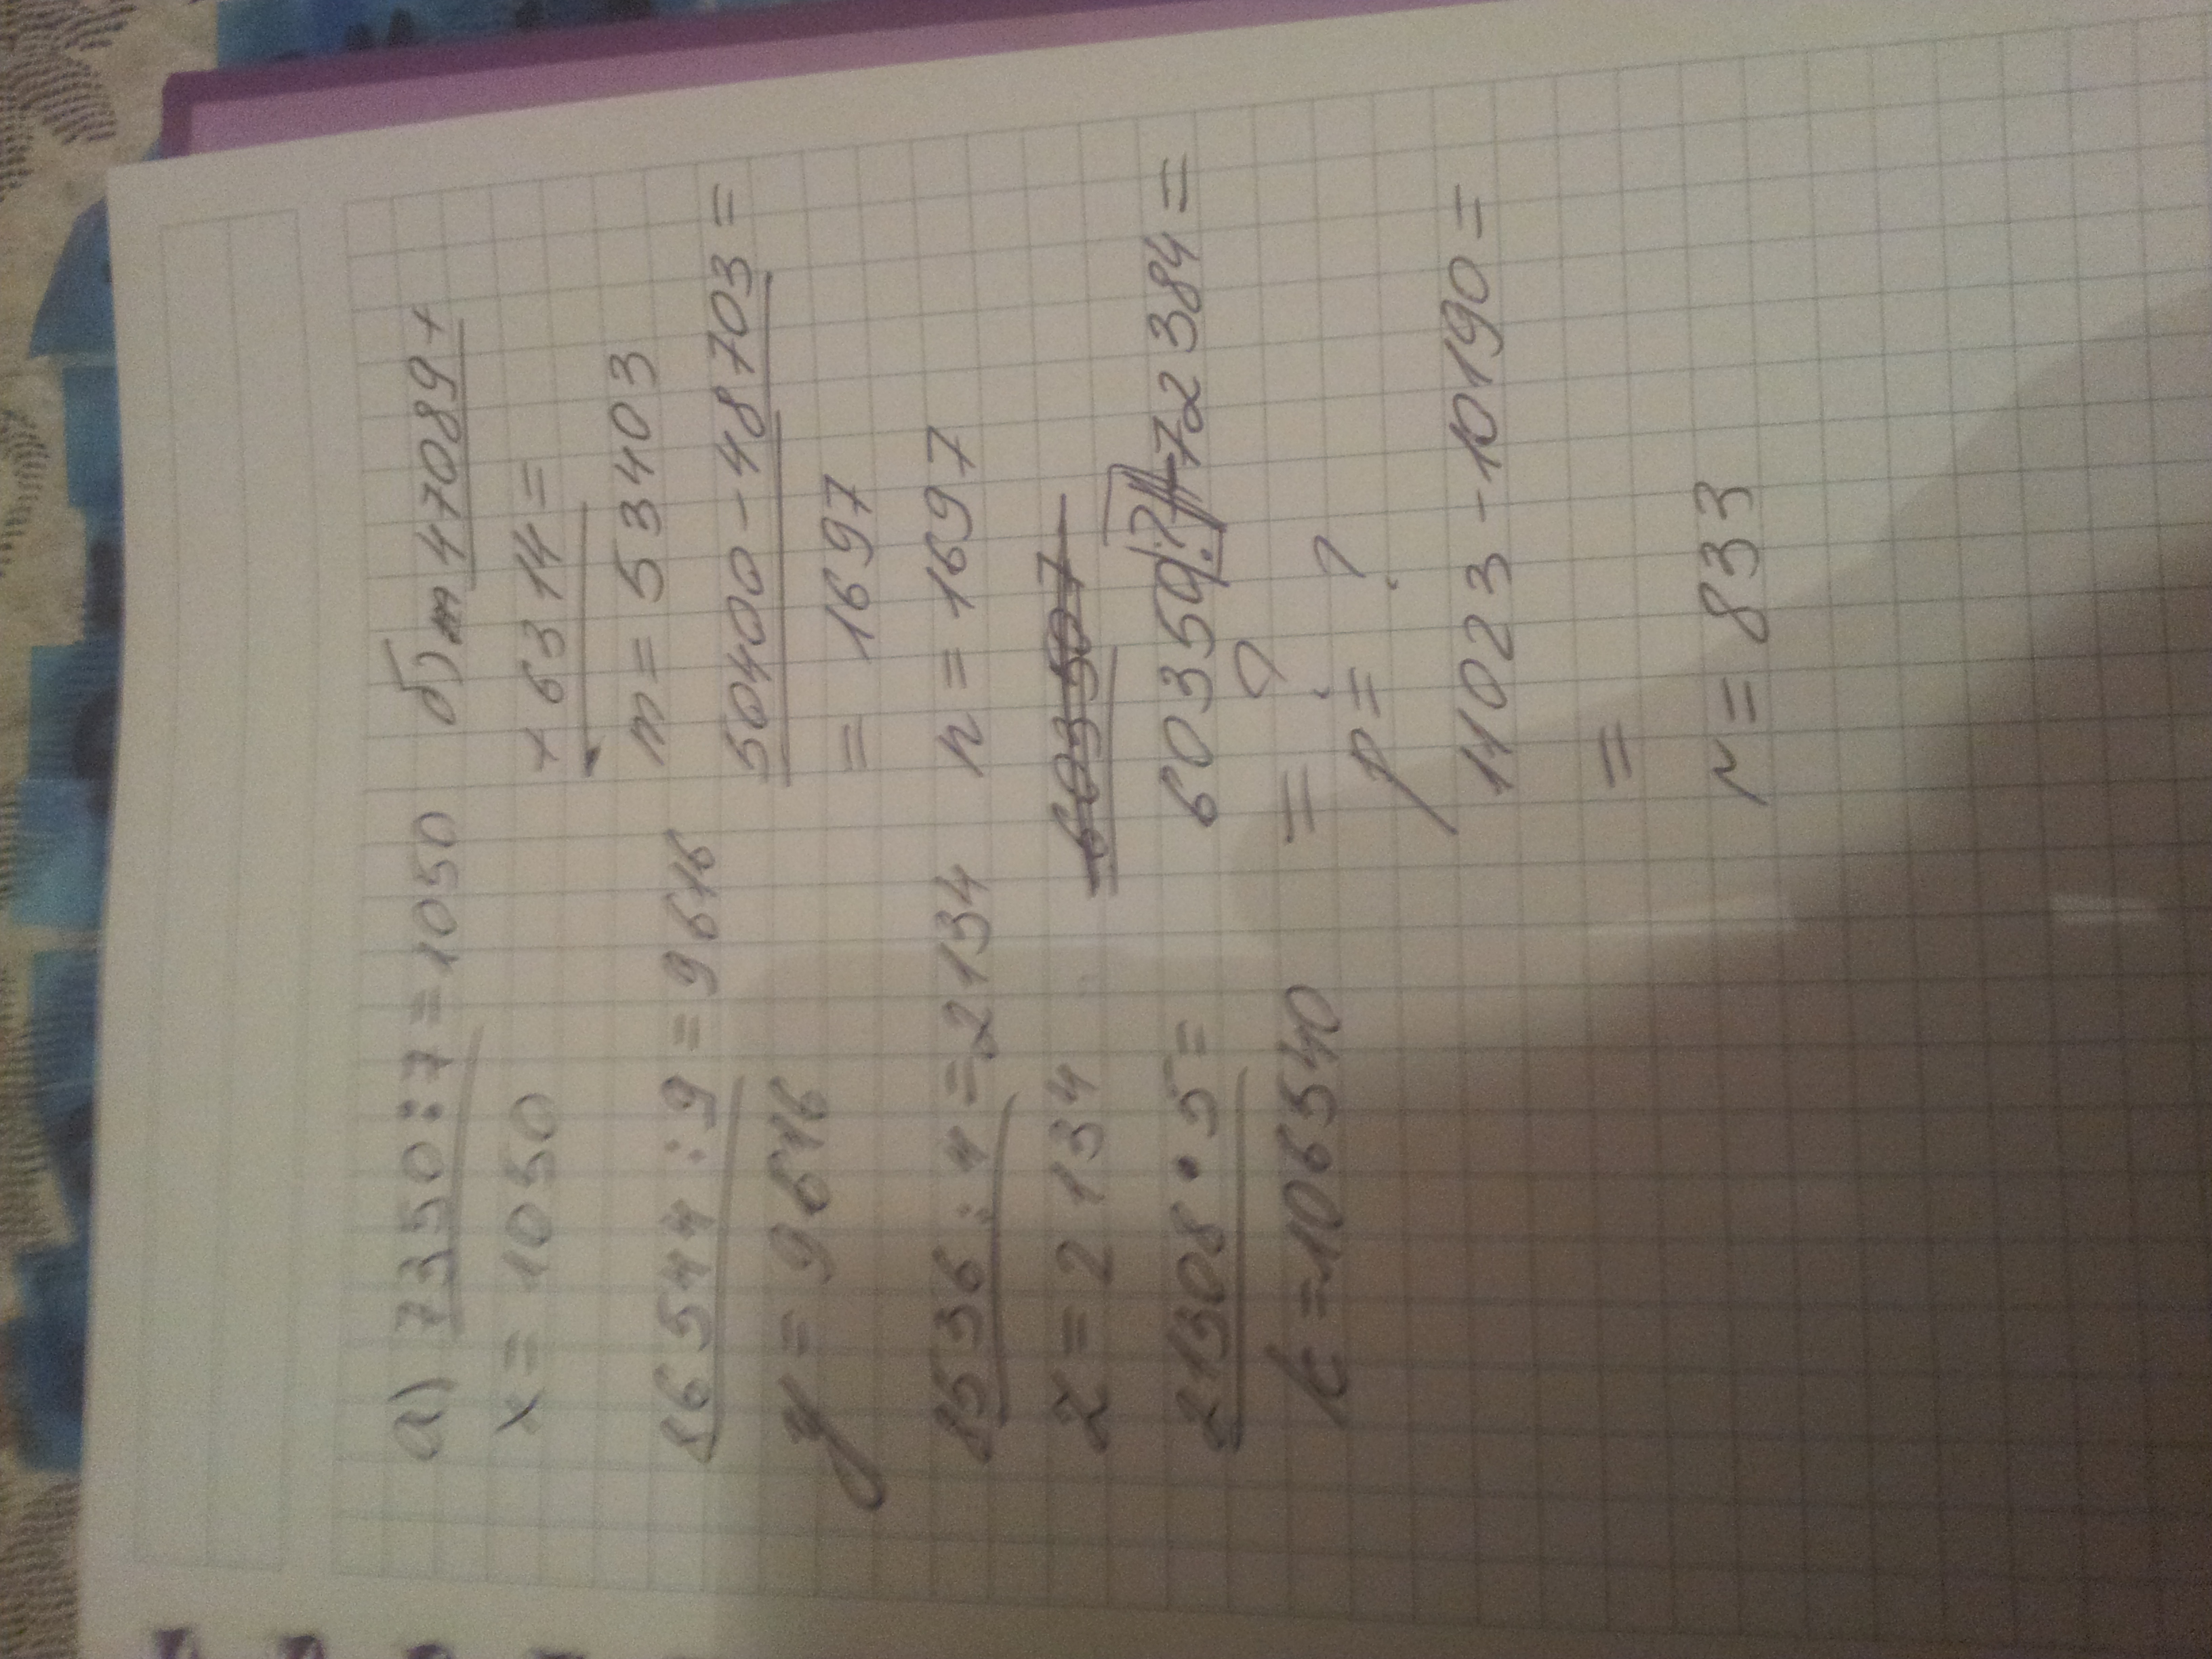 а) 7350:7=1050
x=1050
86544:9=9616
y=9616
8536:4=2134
z=2134
21308•5=
k=106540
б) m 47089+
+6314=
m=53403
50400-48703=
=1697
n=1697
60350
60359 72384=
=
p= ?
11023-10190=
=
r=833